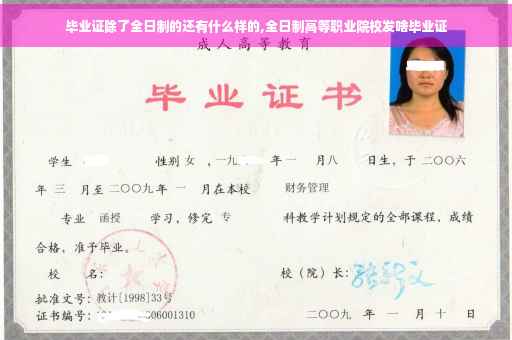 毕业证除了全日制的还有什么样的,全日制高等职业院校发啥毕业证
成人高等教育
毕业证书
学生 性别 女 ,一九 年一 月八 日生，于二〇〇六
年 三 月至二〇〇九年 一 月在本校 财务管理
专业 函授 学习，修完 专 科教学计划规定的全部课程，成绩
合格，准予毕业。
校 名： 校（院）长：
批准文号：教计[1998]33号
证书编号： 06001310 二〇〇九 年 一 月 十 日